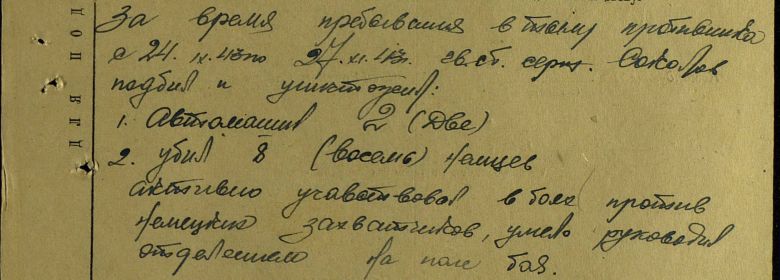 За время пребывания в тылу противника
с 24.IX.43 по 27.XI.43г. гв. ст. серж. Соколов
подбил и уничтожил:
1. Автомашин 2 (две)
2. убил 8 (восемь) немцев
активно учавствовал в боях против
немецких захватчиков, умело руководил
отделением на поле боя.